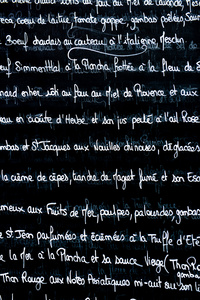 coco, coeur de laitue, tomate grappe, gambas poêlées, Sauc
Boeuf charolais au couteau à l'italienne, Mesclun
euf Simmenthal à la Plancha frottée à la fleur de S
nard entier rôti au four au Miel de Provence et aux
eau en croûte d'Herbe et son jus perlé à l'ail Rose
mbas et St Jacques aux Nouilles chinoises, déglacées
à la crème de cèpes, viande de Maget fumé et son Esca
umeux aux Fruits de Mer, poulpes, palourdes, gambas
e st Jean parfumées et écrémées à la Truffe d'Eté
de la Mer à la Plancha et sa sauce Vierge (Thon R
gambas
Thon Rouge aux Notes Asiatiques mi-cuit ou son li